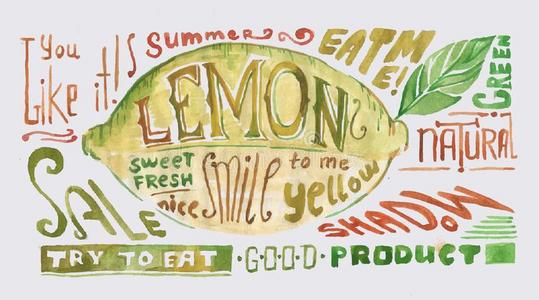 You
Like it!
Summer
EAT ME!
GREEN
LEMON
NATURAL
SWEET
FRESH
nice
Smile
to me
yellow
SALE
SHADOW
TRY TO EAT
GOOD
PRODUCT